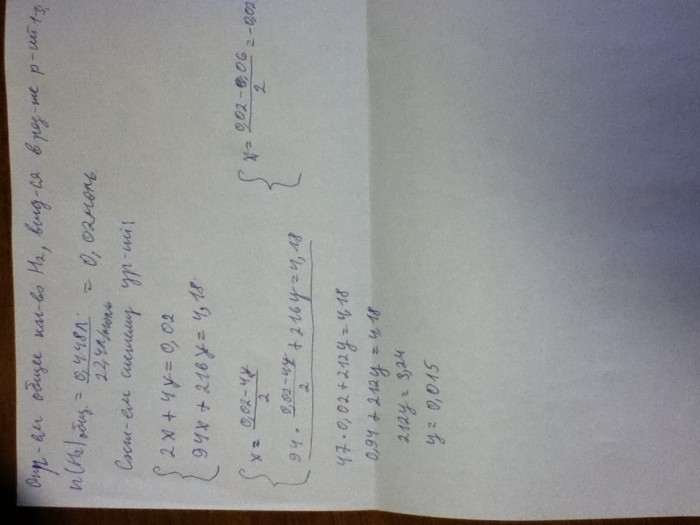 Опр-ем общее кол-во H₂, выд-ся в рез-те р-ций 1,
n(H₂)общ = 0,448л / 22,4л/моль = 0,02моль
Сост-ем систему ур-ий:
{ 2x + 4y = 0,02
94x + 216y = 4,18
{ x = (0,02-4y)/2
94 · (0,02-4y)/2 + 216y = 4,18
47·0,02 + 212y = 4,18
0,94 + 212y = 4,18
212y = 3,24
y = 0,015
{ x = (0,02-0,06)/2 = -0,02